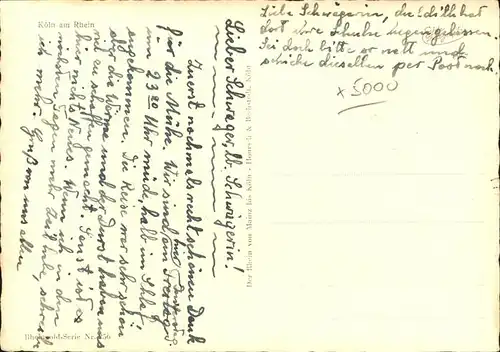 Köln am Rhein
Liebe Schwägerin, die Sibille hat
dort ihre Schuhe liegen gelassen.
Sei doch bitte so nett und
schicke dieselben per Post nach.
x 5000
Lieber Schwager, lb. Schwägerin!
Zuerst nochmals recht schönen Dank
für die Mühe. Wir sind am Freitag
um 23 20 Uhr müde, halb im Schlaf
angekommen. Die Reise war sehr schön
nur die Wärme und der Durst haben uns
viel zu schaffen gemacht. Sonst ist es
hier nichts Neues. Wenn ich in den
nächsten Tagen mehr Zeit habe, schreibe
ich mehr. Gruß von uns allen
Der Rhein von Mainz bis Köln - Hoursch & Bechstedt, Köln
Rheingold-Serie Nr. 356